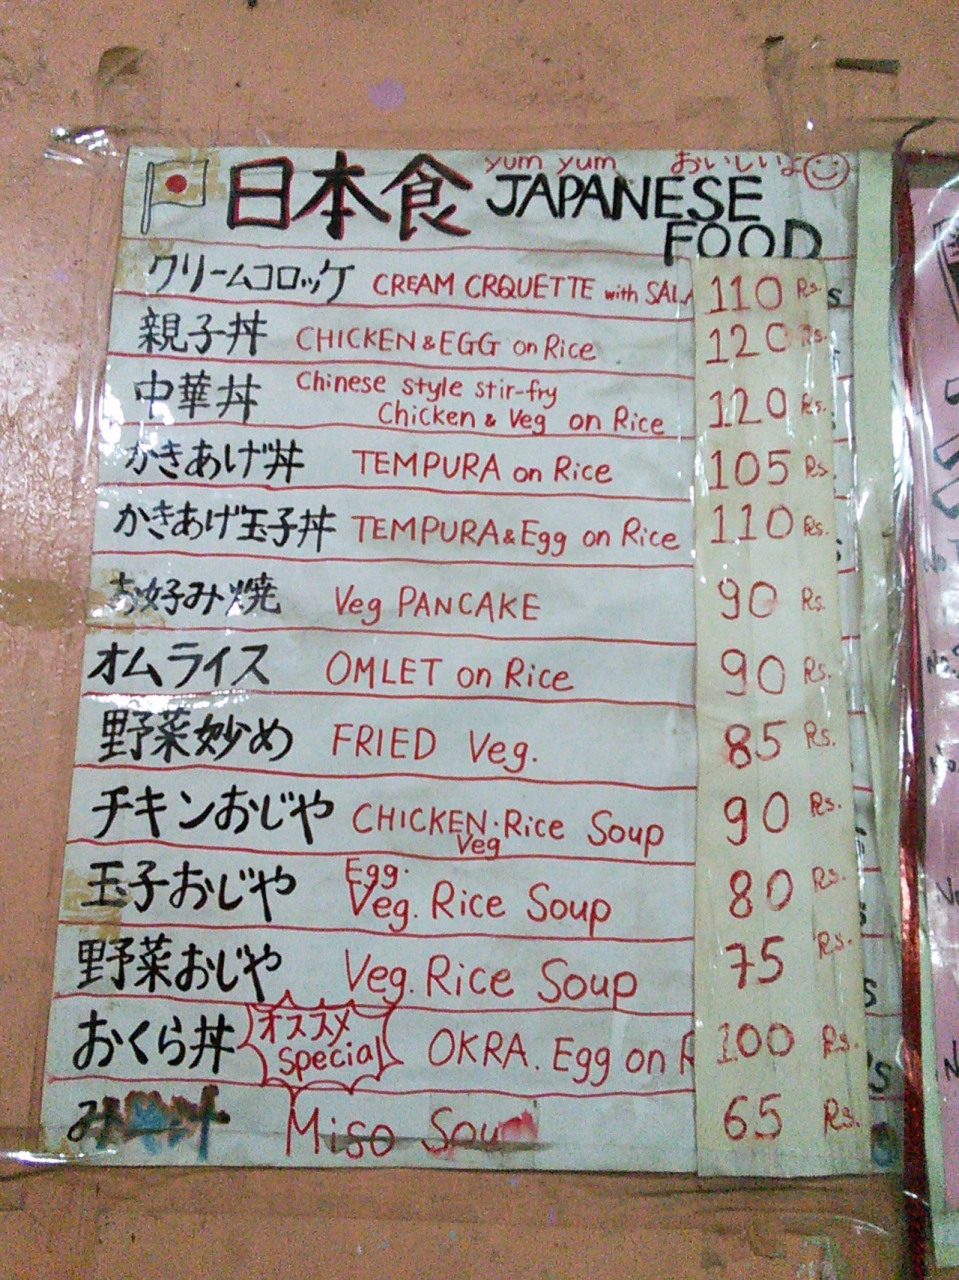 yum yum おいしいよ
日本食 JAPANESE FOOD
クリームコロッケ CREAM CRQUETTE with SAL 110 Rs.
親子丼 CHICKEN & EGG on Rice 120 Rs.
中華丼 Chinese style stir-fry
Chicken & Veg on Rice 120 Rs.
かきあげ丼 TEMPURA on Rice 105 Rs.
かきあげ玉子丼 TEMPURA & Egg on Rice 110 Rs.
お好み焼 Veg PANCAKE 90 Rs.
オムライス OMLET on Rice 90 Rs.
野菜妙め FRIED Veg. 85 Rs.
チキンおじや CHICKEN・Rice Soup 90 Rs.
Veg
玉子おじや Egg・
Veg. Rice Soup 80 Rs.
野菜おじや Veg. Rice Soup 75 Rs.
おくら丼 オススメ Special OKRA. Egg on R 100 Rs.
み Miso Sou 65 Rs.